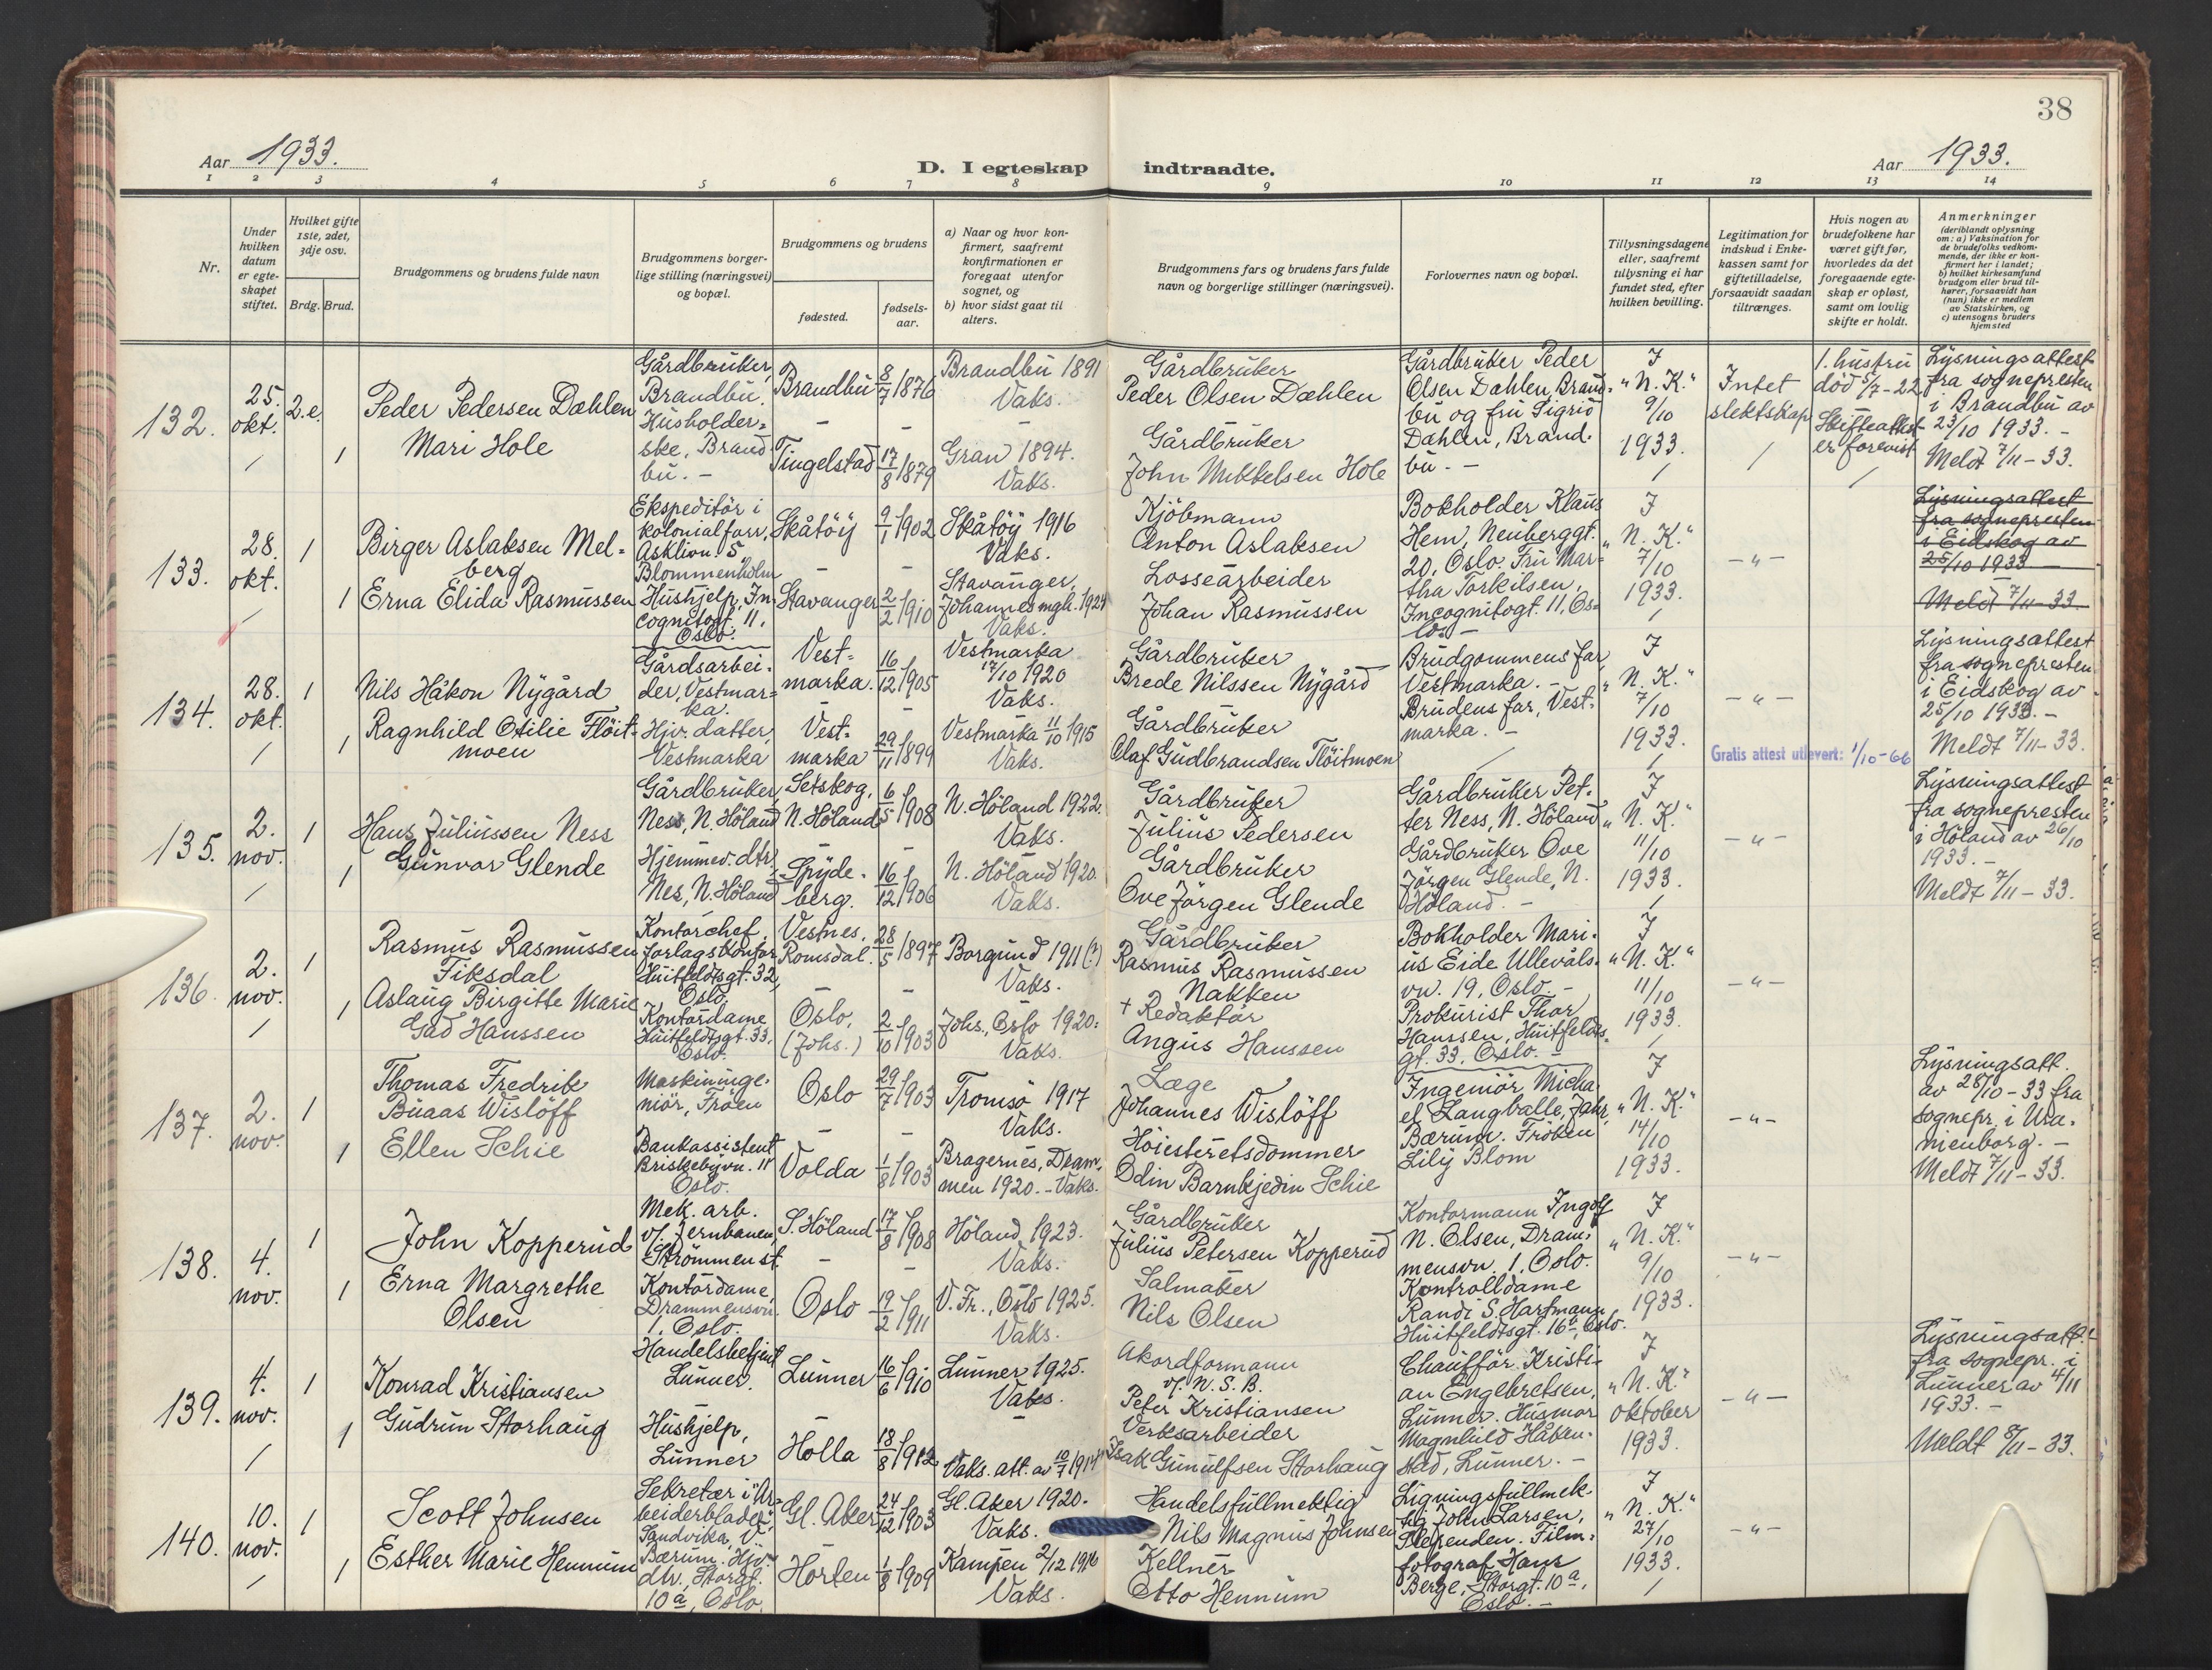 38
Aar 1933.
D. I egteskap indtraadte.
Aar 1933.
1 2 3 4 5 6 7 8 9 10 11 12 13 14
Nr.
Under hvilken datum er egteskapet stiftet.
Hvilket gifte 1ste, 2det, 3dje osv.
Brdg. Brud.
Brudgommens og brudens fulde navn
Brudgommens borgerlige stilling (næringsvei) og bopæl.
Brudgommens og brudens
fødested.
fødselsaar.
a) Naar og hvor konfirmert, saafremt konfirmationen er foregaat utenfor sognet, og
b) hvor sidst gaat til alters.
Brudgommens fars og brudens fars fulde navn og borgerlige stillinger (næringsvei).
Forlovernes navn og bopæl.
Tillysningsdagene eller, saafremt tillysning ei har fundet sted, efter hvilken bevilling.
Legitimation for indskud i Enkekassen samt for giftetilladelse, forsaavidt saadan tiltrænges.
Hvis nogen av brudefolkene har været gift før, hvorledes da det foregaaende egteskap er opløst, samt om lovlig skifte er holdt.
Anmerkninger (deriblandt oplysning om: a) Vaksination for de brudefolks vedkommende, der ikke er konfirmert her i landet; b) hvilket kirkesamfund brudgom eller brud tilhører, forsaavidt han (hun) ikke er medlem av Statskirken, og c) utensogns bruders hjemsted
132. 25. okt. 2.e
Peder Pedersen Dæhlen
Gårdbruker, Brandbu.
Brandbu 8/7 1876
Brandbu 1891 Vaks.
Gårdbruker Peder Olsen Dæhlen
Gårdbruker Peder Olsen Dæhlen, Brandbu og fru Sigrid Dæhlen, Brandbu. -
I "N. K." 9/10 1933.
Intet slektskap
1. hustru død 5/7-22 Skifteattest er forevist
Lysningsattest fra sognepresten i Brandbu av 23/10 1933. - Meldt 7/11-33.
1 Mari Hole
Husholderske, Brandbu. -
Tingelstad 17/8 1879
Gran 1894. Vaks.
Gårdbruker John Mikkelsen Hole
133. 28. okt. 1
Birger Aslaksen Melberg
Ekspeditör i kolonialforr., Askliv. 5, Blommenholm
Skåtöy 9/1 1902
Skåtöy 1916 Vaks.
Kjöbmann Anton Aslaksen
Bokholder Klaus Hem, Neuberggt. 20, Oslo. Fru Martha Torkilsen, Incognitogt. 11, Oslo. -
I "N. K." 7/10 1933.
- " -
Lysningsattest fra sognepresten i Eidskog av 25/10 1933 - Meldt 7/11-33.
1 Erna Elida Rasmussen
Hushjelp, Incognitogt. 11, Oslo.
Stavanger 2/2 1910
Stavanger, Johannes mgh. 1924 Vaks.
Lossearbeider Johan Rasmussen
134. 28. okt. 1
Nils Håkon Nygård
Gårdsarbeider, Vestmarka.
Vestmarka. 16/12 1905
Vestmarka 17/10 1920 Vaks.
Gårdbruker Brede Nilssen Nygård
Brudgommens far Vestmarka. - Brudens far, Vestmarka. -
I "N. K." 7/10 1933.
- " -
Gratis attest utlevert: 1/10-66
Lysningsattest fra sognepresten i Eidskog av 25/10 1933. - Meldt 7/11-33.
1 Ragnhild Otilie Flöitmoen
Hjv. datter, Vestmarka
Vestmarka 29/11 1899
Vestmarka 11/10 1915 Vaks.
Gårdbruker Olaf Gudbrandsen Flöitmoen
135. 2. nov. 1
Hans Juliussen Ness
Gårdbruker, Ness, N. Höland
Setskog, N. Höland 6/5 1908
N. Höland 1922. Vaks.
Gårdbruker Julius Pedersen
Gårdbruker Petter Ness, N. Höland Gårdbruker Ove Jörgen Glende, N. Höland. -
I "N. K." 11/10 1933.
- " -
Lysningsattest fra sognepresten i Höland av 26/10 1933. - Meldt 7/11-33.
1 Gunvor Glende
Hjemmev. dtr, Nes, N. Höland
Spydeberg. 16/12 1906
N. Höland 1920. Vaks.
Gårdbruker Ove Jörgen Glende
136. 2. nov. 1
Rasmus Rasmussen Fiksdal
Kontorchef, Forlagskontor Huitfeldtsgt. 32, Oslo.
Vestnes, Romsdal. 28/5 1897
Borgund 1911 (?) Vaks.
Gårdbruker Rasmus Rasmussen Nakken
Bokholder Marius Eide Ullevålsvn. 19, Oslo. - Prokurist Thor Hanssen, Huitfeldtsgt. 33, Oslo. -
I "N. K." 11/10 1933.
- " -
1 Aslaug Birgitte Marie Gad Hanssen
Kontordame Huitfeldtsgt. 33, Oslo.
Oslo, (Johs.) 2/10 1903
Johs., Oslo 1920. Vaks.
+ Redaktör Angus Hanssen
137. 2. nov. 1
Thomas Fredrik Buaas Wislöff
Maskiningeniör, Fröen
Oslo 29/7 1903
Tromsö 1917 Vaks.
Læge Johannes Wislöff
Ingeniör Michael Langballe, Jahr, Bærum. Fröken Lily Blom
I "N. K." 14/10 1933.
- " -
Lysningsatt. av 28/10-33 fra sognepr. i Uranienborg. - Meldt 7/11-33.
1 Ellen Schie
Bankassistent Briskebyvn. 11 Oslo.
Volda 1/8 1903
Bragernes, Drammen 1920. - Vaks.
Höiesteretsdommer Odin Barnkjedin Schie
138. 4. nov. 1
John Kopperud
Mek. arb. v/. Jernbanen, Strömmen st.
S. Höland 17/8 1908
Höland 1923. Vaks.
Gårdbruker Julius Petersen Kopperud
Kontormann Ingolf N. Olsen, Drammensvn. 1. Oslo. Kontrolldame Randi S. Hartmann, Huitfeldtsgt. 16, Oslo.
I "N. K." 9/10 1933.
- " -
1 Erna Margrethe Olsen
Kontordame, Drammensvn. 1. Oslo.
Oslo 19/2 1911
V. Fr., Oslo 1925. Vaks.
Salmaker Nils Olsen
139. 4. nov. 1
Konrad Kristiansen
Handelsbetjent Lunner.
Lunner 16/6 1910
Lunner 1925. Vaks.
Akordformann v/. N. S. B. Peter Kristiansen
Chaufför Kristian Engebretsen, Lunner. Husmor Magnhild Håkenstad, Lunner. -
I "N. K." oktober 1933.
- " -
Lysningsatt. fra sognepr. i Lunner av 4/11 1933. - Meldt 8/11-33.
1 Gudrun Storhaug
Hushjelp, Lunner
Holla 18/8 1912
Vaks. att. av 10/7 1914
Verksarbeider Isak Gunulfsen Storhaug
140. 10. nov. 1
Scott Johnsen
Sekretær i "Arbeiderbladet", Sandvika, V. Bærum.
Gl. Aker 24/12 1903
Gl. Aker 1920. Vaks.
Handelsfullmektig Nils Magnus Johnsen
Ligningsfullmektig John Larsen, Slependen. Filmfotograf Hans Berge, Storgt. 10 a, Oslo. -
I "N. K." 27/10 1933.
- " -
1 Esther Marie Hennum
Hjv. dtr., Storgt. 10 a, Oslo.
Horten 1/8 1909
Kampen 2/12 1916 Vaks.
Kellner Otto Hennum